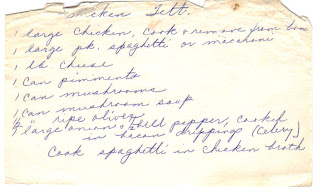 Chicken Tett.
1 large chicken, cook & remove from bone
1 large pk. spaghetti or macaroni
1 lb. cheese
1 can pimments
1 can mushrooms
1 can mushroom soup
" ripe olives
1 large onion & bell pepper, cooked
in bacon drippings (celery)
Cook spaghetti in chicken broth